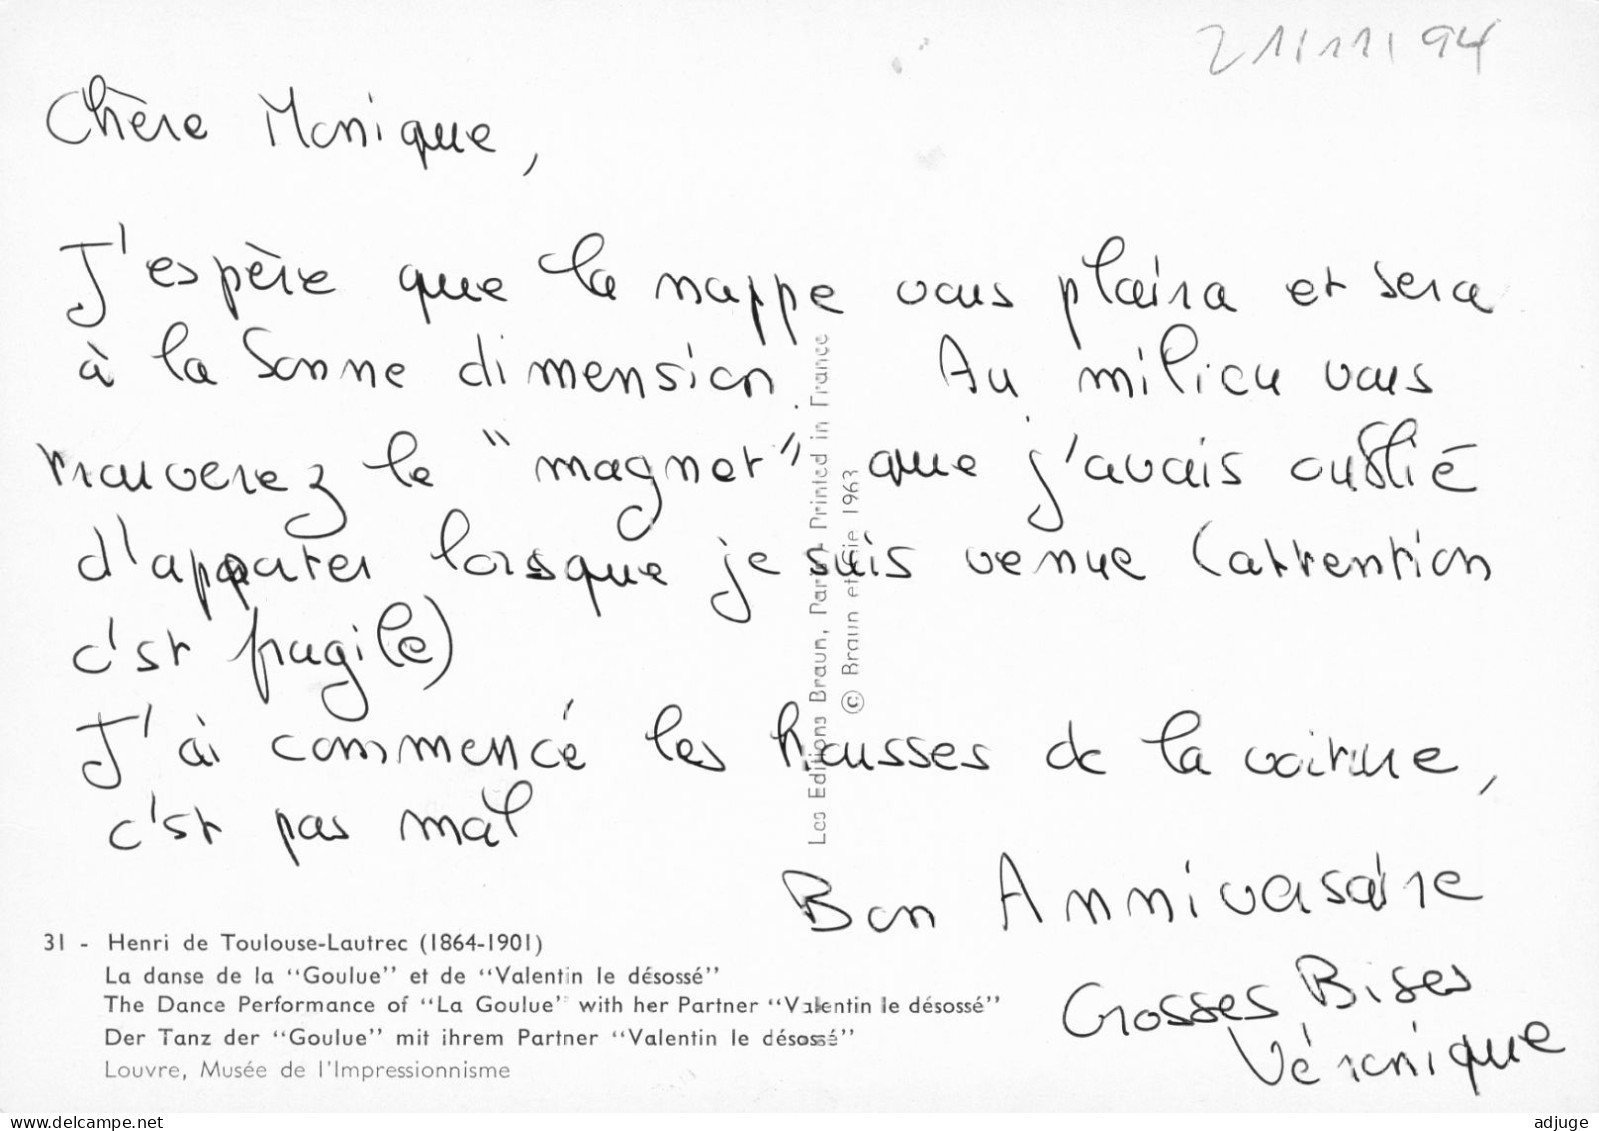 21/11/94
Chère Monique,
J'espère que la nappe vous plaira et sera
à la bonne dimension. Au milieu vous
trouverez le "magnet" que j'avais oublié
d'apporter lorsque je suis venue (attention
c'est fragile)
J'ai commencé les housses de la voiture,
c'est pas mal
Bon Anniversaire
Grosses Bises
Véronique
Les Editions Braun, Paris - Printed in France
© Braun et Cie 1963
31 - Henri de Toulouse-Lautrec (1864-1901)
La danse de la "Goulue" et de "Valentin le désossé"
The Dance Performance of "La Goulue" with her Partner "Valentin le désossé"
Der Tanz der "Goulue" mit ihrem Partner "Valentin le désossé"
Louvre, Musée de l'Impressionnisme
www.delcampe.net
adjuge